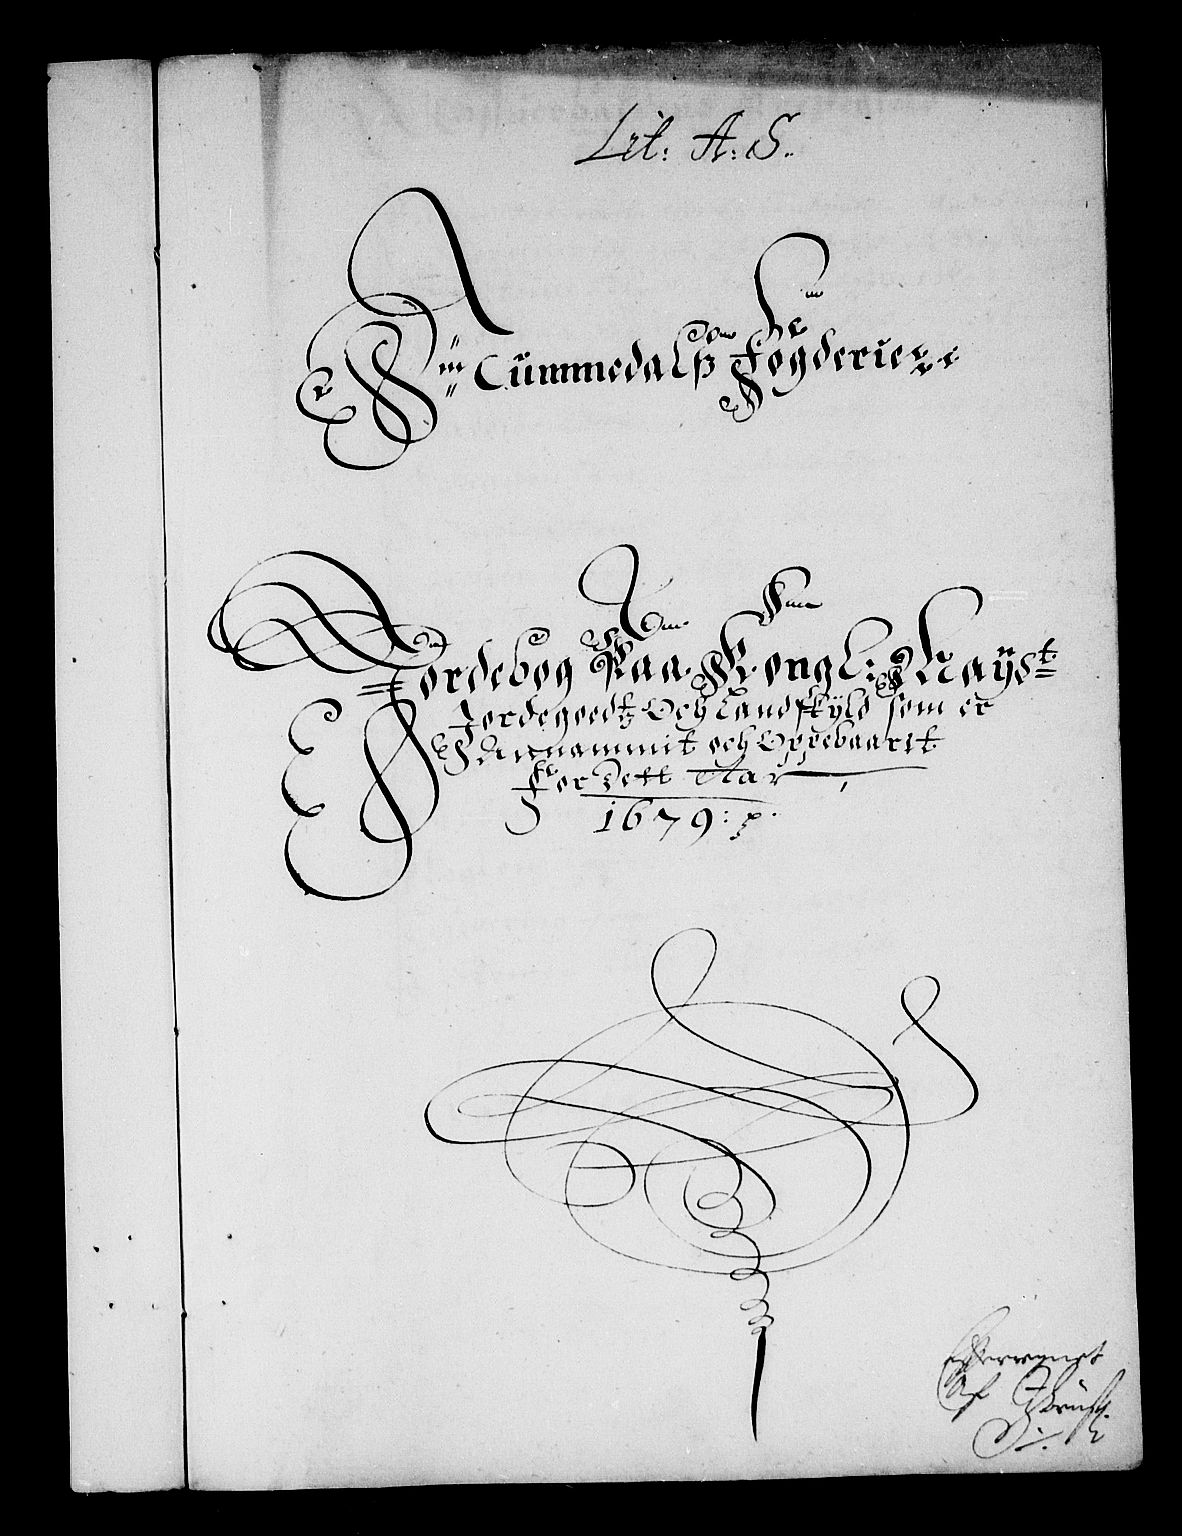 Lit: A: S.
Cummedalß Fogderie
Jordebog Paa Kongl: Mayst:
Jordegoedtz Och Landskyld som er
Annammit och Oppebaarit
For Dett Aar
1679: p.